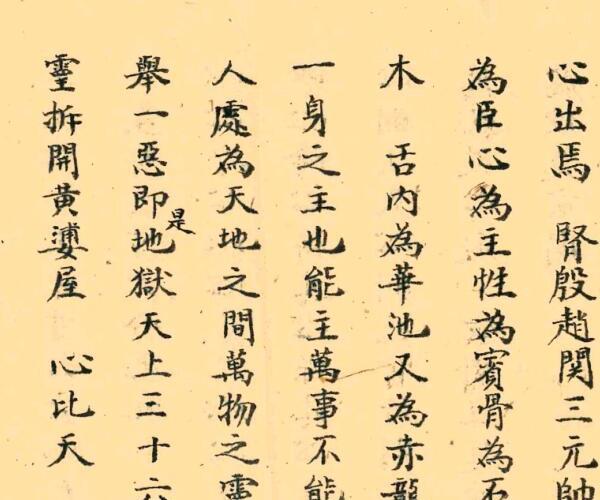 心出焉 腎殷趙関三元帥
為臣心為主性為賓骨為石
木 舌内為華池又為赤龍
一身之主也能主萬事不能
人處為天地之間萬物之靈
舉一惡即是地獄天上三十六
靈拆開黃婆屋 心比天